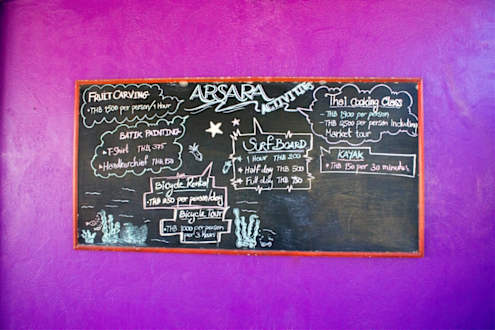 ABSARA ACTIVITIES
FRUIT CARVING
• THB 1500 per person/1 Hour
BATIK PAINTING
• T-Shirt THB 375
• Handkerchief THB 150
SURF BOARD
• 1 Hour THB 200
• Half day THB 500
• Full day THB 750
Thai Cooking Class
- THB 1900 per person
- THB 2500 per person Including
Market tour
KAYAK
• THB 150 per 30 minutes
Bicycle Rental
per person/day
Bicycle Tour
• THB 1000 per person
per 3 Hours